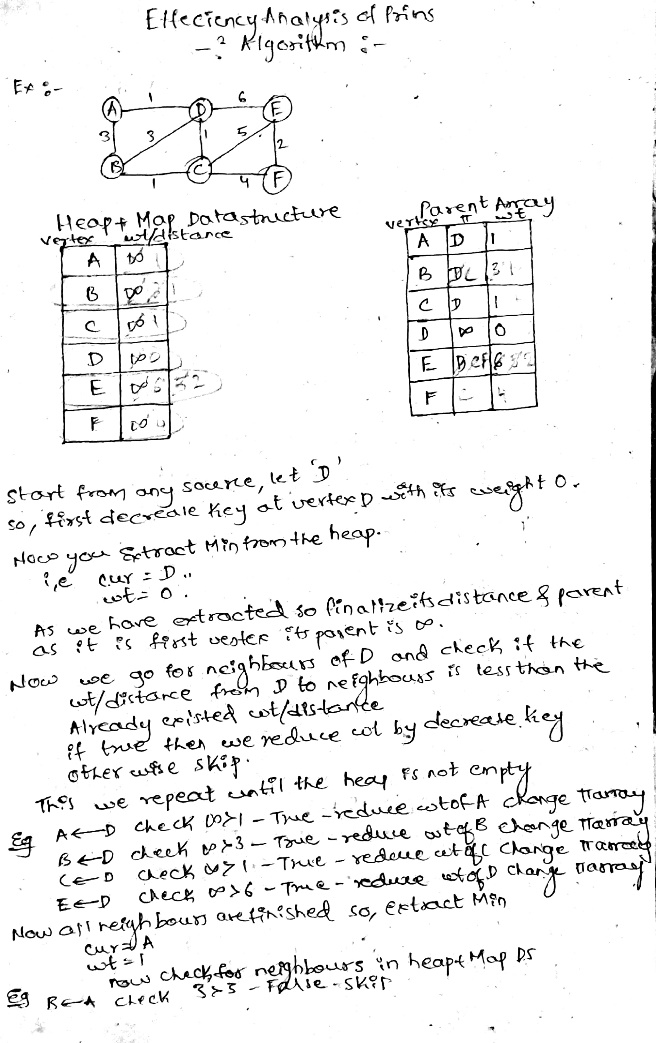 Effeciency Analysis of Prims
Algorithm :-
Ex :-
A 1 D 6 E
3 3 1 5 2
B 1 C 4 F
Heap + Map Datastructure
vertex wt/distance
A ∞ 1
B ∞ 3 1
C ∞ 1
D ∞ 0
E ∞ 6 5 2
F ∞ 4
Parent Array
vertex π wt
A D 1
B D C 3 1
C D 1
D ∞ 0
E D C F 6 5 2
F C 4
Start from any source, let 'D'
so, first decreale key at vertex D with its weight 0.
Now you Extract Min from the heap.
i,e cur = D,,
wt = 0.
As we have extracted so finalize its distance & parent
as it is first vertex its parent is ∞.
Now we go for neighbours of D and check if the
wt/distance from D to neighbours is less than the
Already existed wt/distance
if true then we reduce wt by decrease key
other wise skip.
This we repeat until the heap is not empty
Eg A←D check ∞>1 - True - reduce wt of A change π array
B←D check ∞>3 - True - reduce wt of B change π array
C←D check ∞>1 - True - reduce wt of C change π array
E←D check ∞>6 - True - reduce wt of D change π array
Now all neighbours are finished so, extract Min
cur = A
wt = 1
now check for neighbours in heap+Map DS
Eg B←A check 3>3 - False - skip